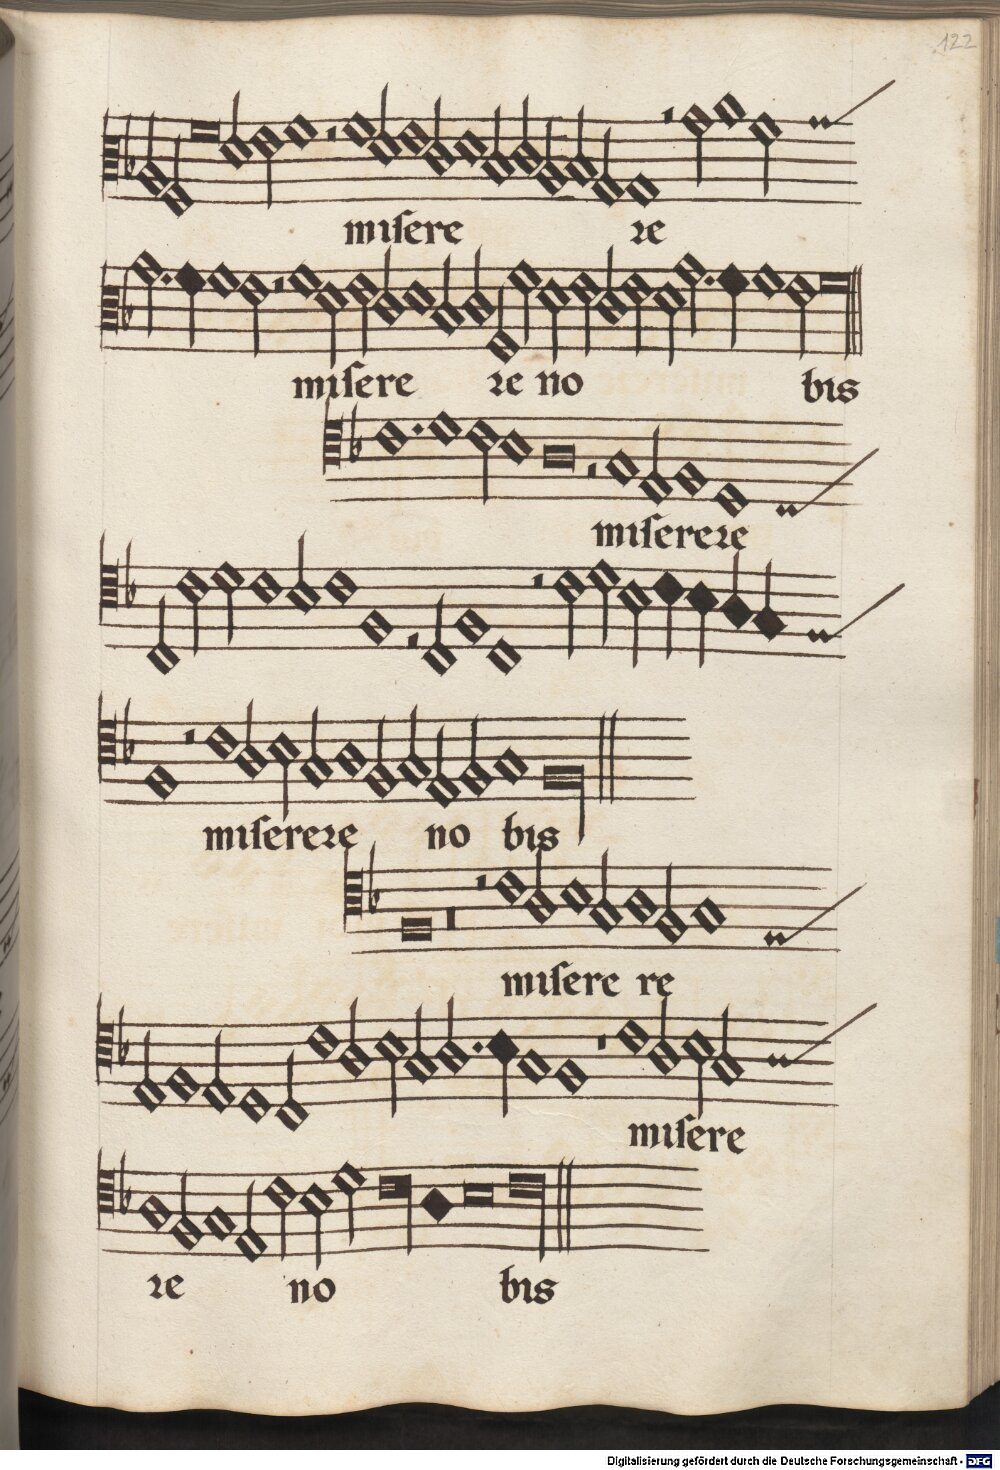 122
miſere re
miſere re no bis
miſerere
miſerere no bis
miſere re
miſere
re no bis
Digitalisierung gefördert durch die Deutsche Forschungsgemeinschaft - DFG